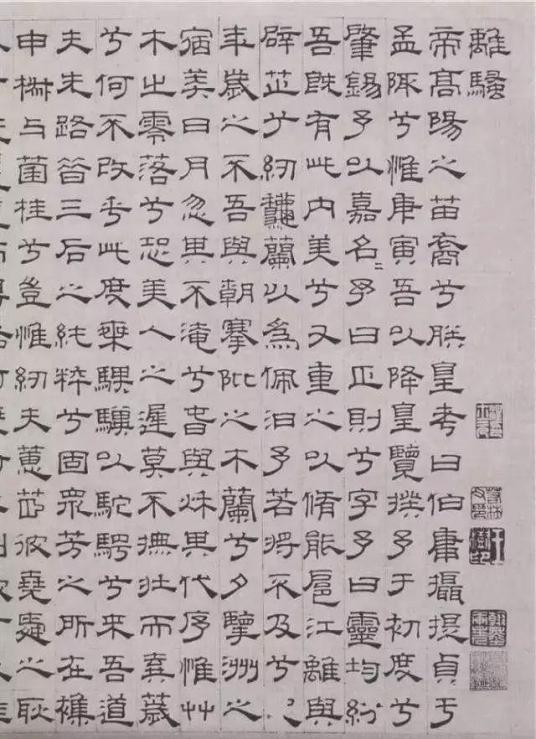 離騷
帝高陽之苗裔兮朕皇考曰伯庸攝提貞于
孟陬兮惟庚寅吾以降皇覽揆予于初度兮
肇錫予以嘉名予曰正則兮字予曰靈均紛
吾既有此内美兮又重之以脩能扈江離與
辟芷兮紉龝蘭以為佩汩予若將不及兮
年歲之不吾與朝搴阰之木蘭兮夕擥洲之
宿莽日月忽其不淹兮春與秋其代序惟艸
木之零落兮恐美人之遲莫不撫壯而棄薉
兮何不改乎此度椉騏驥以駝騁兮來吾道
夫先路昔三后之純粹兮固衆芳之所在襍
申椒与菌桂兮豈惟紉夫蕙茝彼堯舜之耿